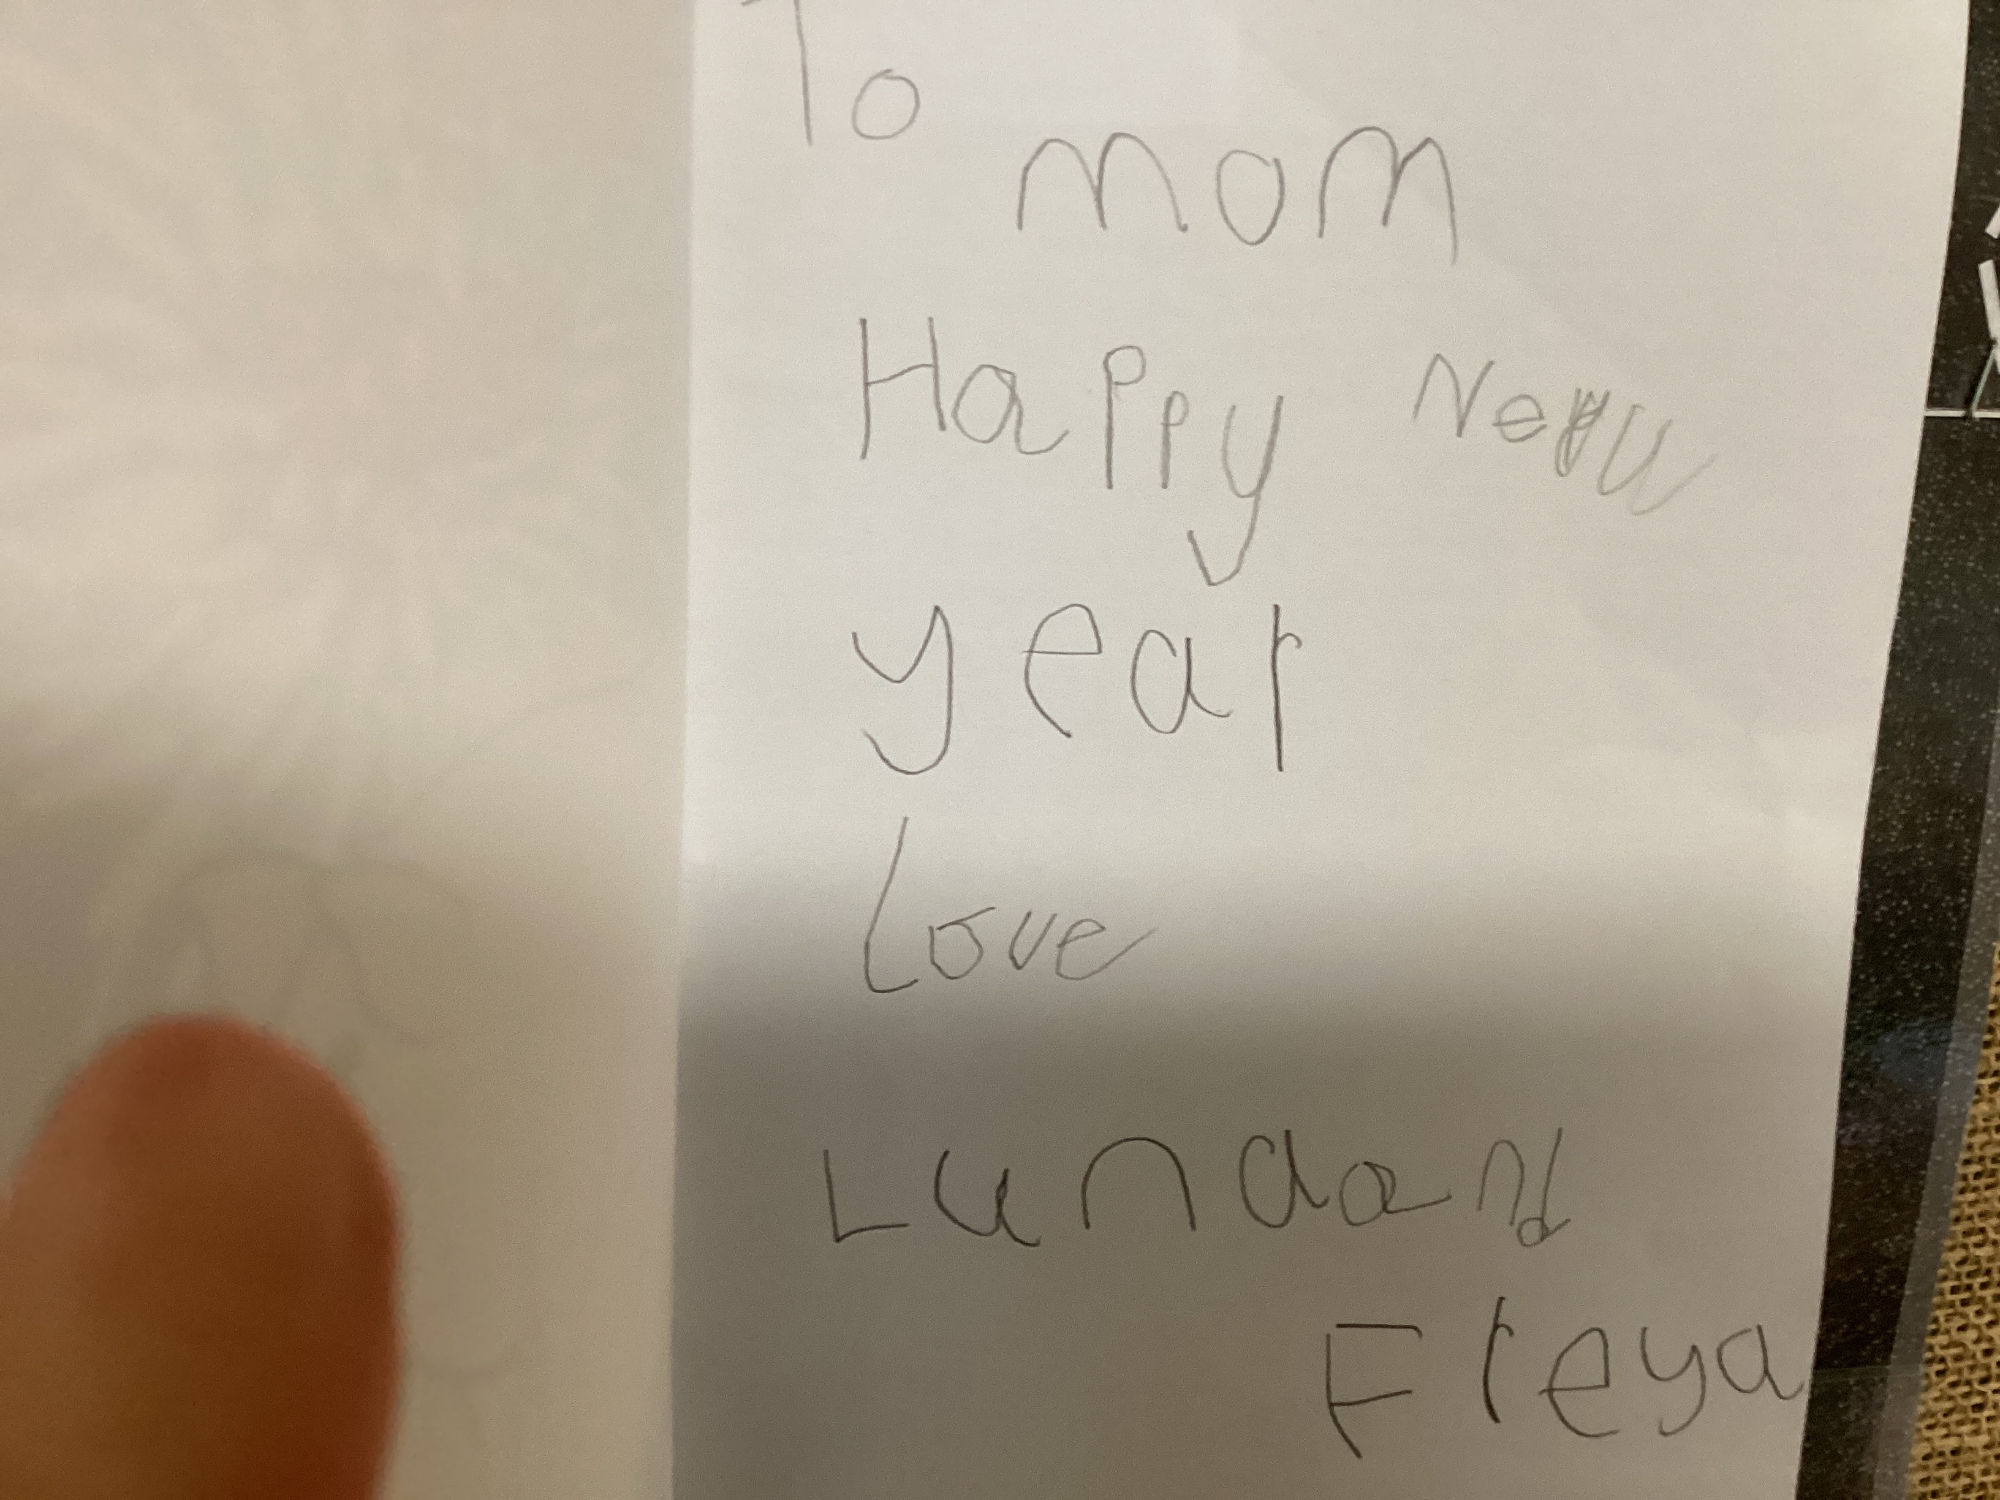 To
mom
Happy New
year
Love
Lunaand
Freya